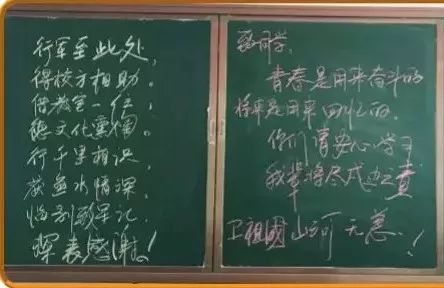 行军至此处，
得校方相助。
借教室一位，
感文化熏陶。
行千里相识，
获鱼水情深。
临别致笔记，
深表感谢！
致同学：
青春是用来奋斗的
将来是用来回忆的。
你们请安心学习
我辈将尽戍边之责
卫祖国山河无恙！